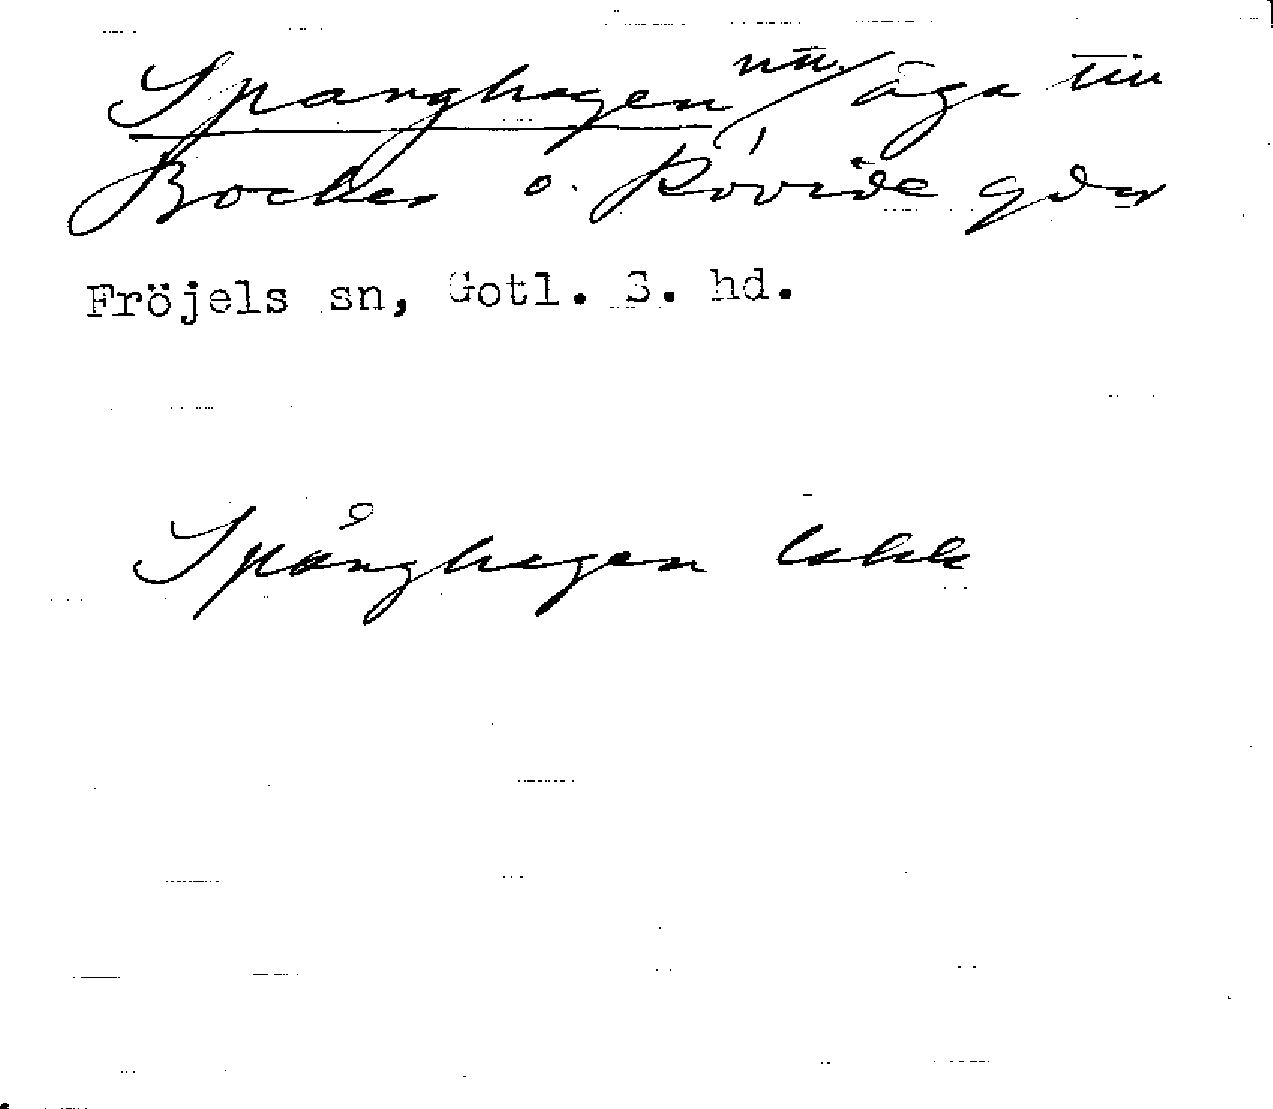 Spanghagen nu äga till
Bocker o. Rovide gdar
Fröjels sn, Gotl. S. hd.
Spånghagen